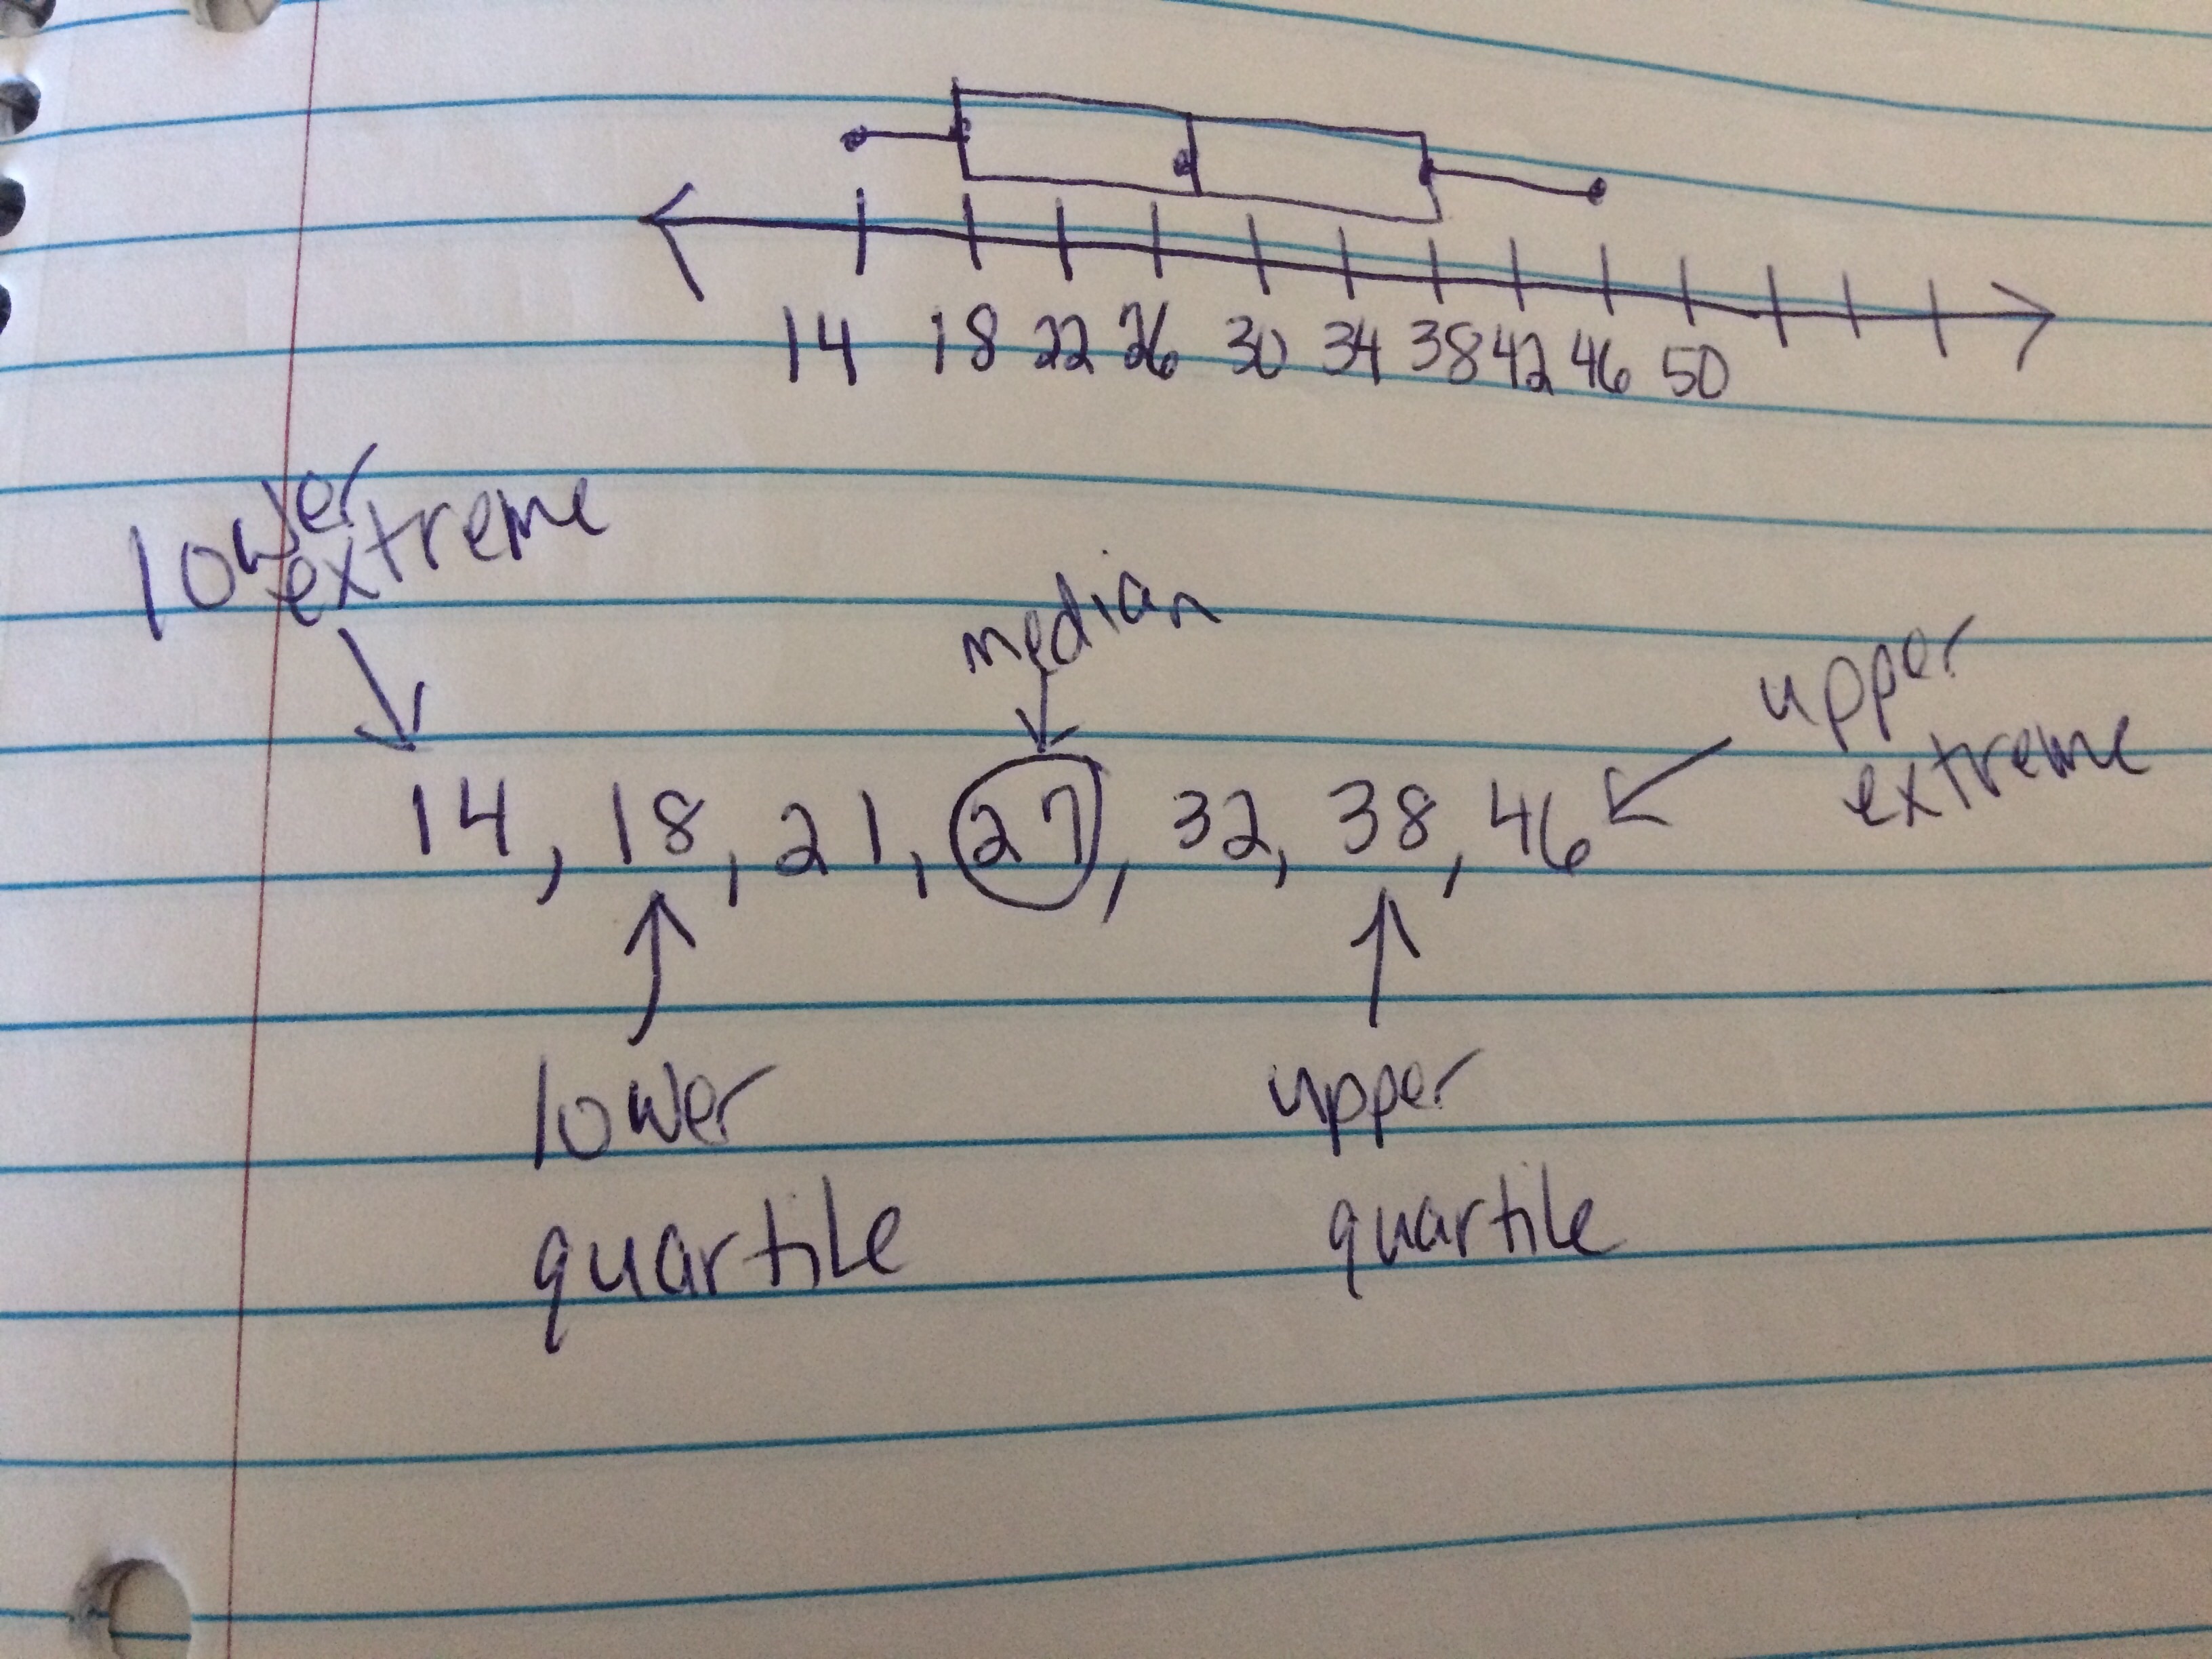 14 18 22 26 30 34 38 42 46 50
lower
extreme
median
upper
extreme
14, 18, 21, 27, 32, 38, 46
lower
quartile
upper
quartile